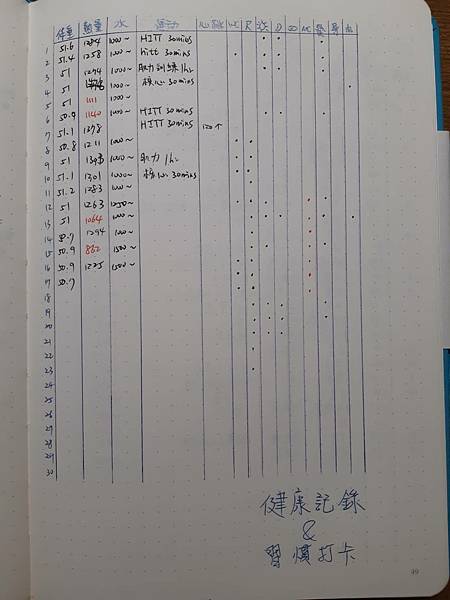 體重 熱量 水 運動
1 51.6 1284 1000~ HIIT 30mins
2 51.4 1258 1000~ hiit 30 mins
3 51 1294 1000~ 肌力訓練 1hr
4 51 1000~ 核心 30mins
5 51 1111 1000~
6 50.9 1140 1000~ HIIT 30mins
7 51.1 1378 HIIT 30mins
8 50.8 1211 1000~
9 51 1000~ 肌力 1hr
10 51.1 1301 1000~ 核心 30mins
11 51.2 1283 1000~
12 51 1263 1250~
13 51 1064 1000~
14 50.7 1294 1000~
15 50.9 862 1500~
16 50.9 1225 1500~
17 50.7
18
19
20
21
22
23
24
25
26
27
28
29
30
健康記錄
&
習慣打卡
49